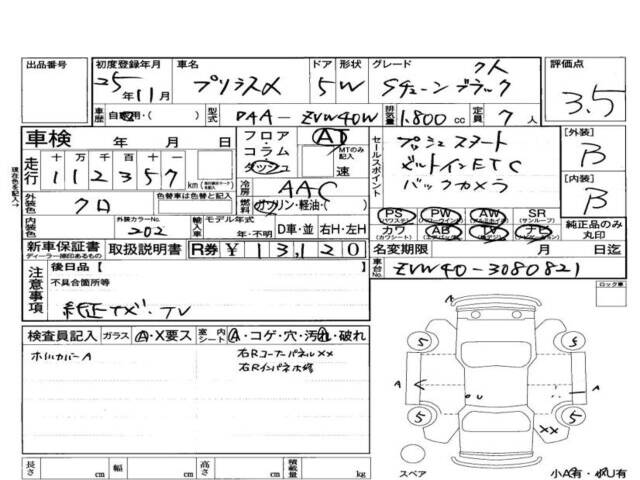 出品番号 初度登録年月 車名 ドア 形状 グレード 評価点
25年11月 プリウスα 5 W Sチューン ブラック 7人 3.5
車歴 自家用・( ) 型式 DAA-ZVW40W 排気量 1,800cc 定員 7人
車検 年 月 日 フロア AT セールスポイント プッシュスタート [外装]
走行 十万千百十一 コラム MTのみ記入 ビルトインETC B
112357 km ダッシュ 速 バックカメラ [内装]
現在色を記入→ 冷房 AAC B
外装色 クロ 色替車は色替と元色 燃料 ガソリン・軽油・( ) PS PW AW SR 純正品のみ丸印
(パワステ) (パワーウインド) (アルミホイル) (サンルーフ)
内装色 外装カラーNo. 202 輸入車 モデル年式 年・不明 D車・並 右H・左H カワ AB TV ナビ
(カワシート) (エアバッグ)
新車保証書 取扱説明書 R券 ¥13,120 名変期限 月 日迄
ディーラー捺印あるもの
車台No. ZVW40-3080821
注意事項 後日品【 】 ロック車
不具合箇所等
純正ナビ・TV
検査員記入 ガラス A・X要ス 室内シート A・コゲ・穴・汚れ・破れ
ホイルカバーA 右RコーナーパネルXX
右Rインパネ大修
5 5
A A
U
5 5
XX
長さ cm 幅 cm 高さ cm 積載量 kg
スペア 小A有・小U有